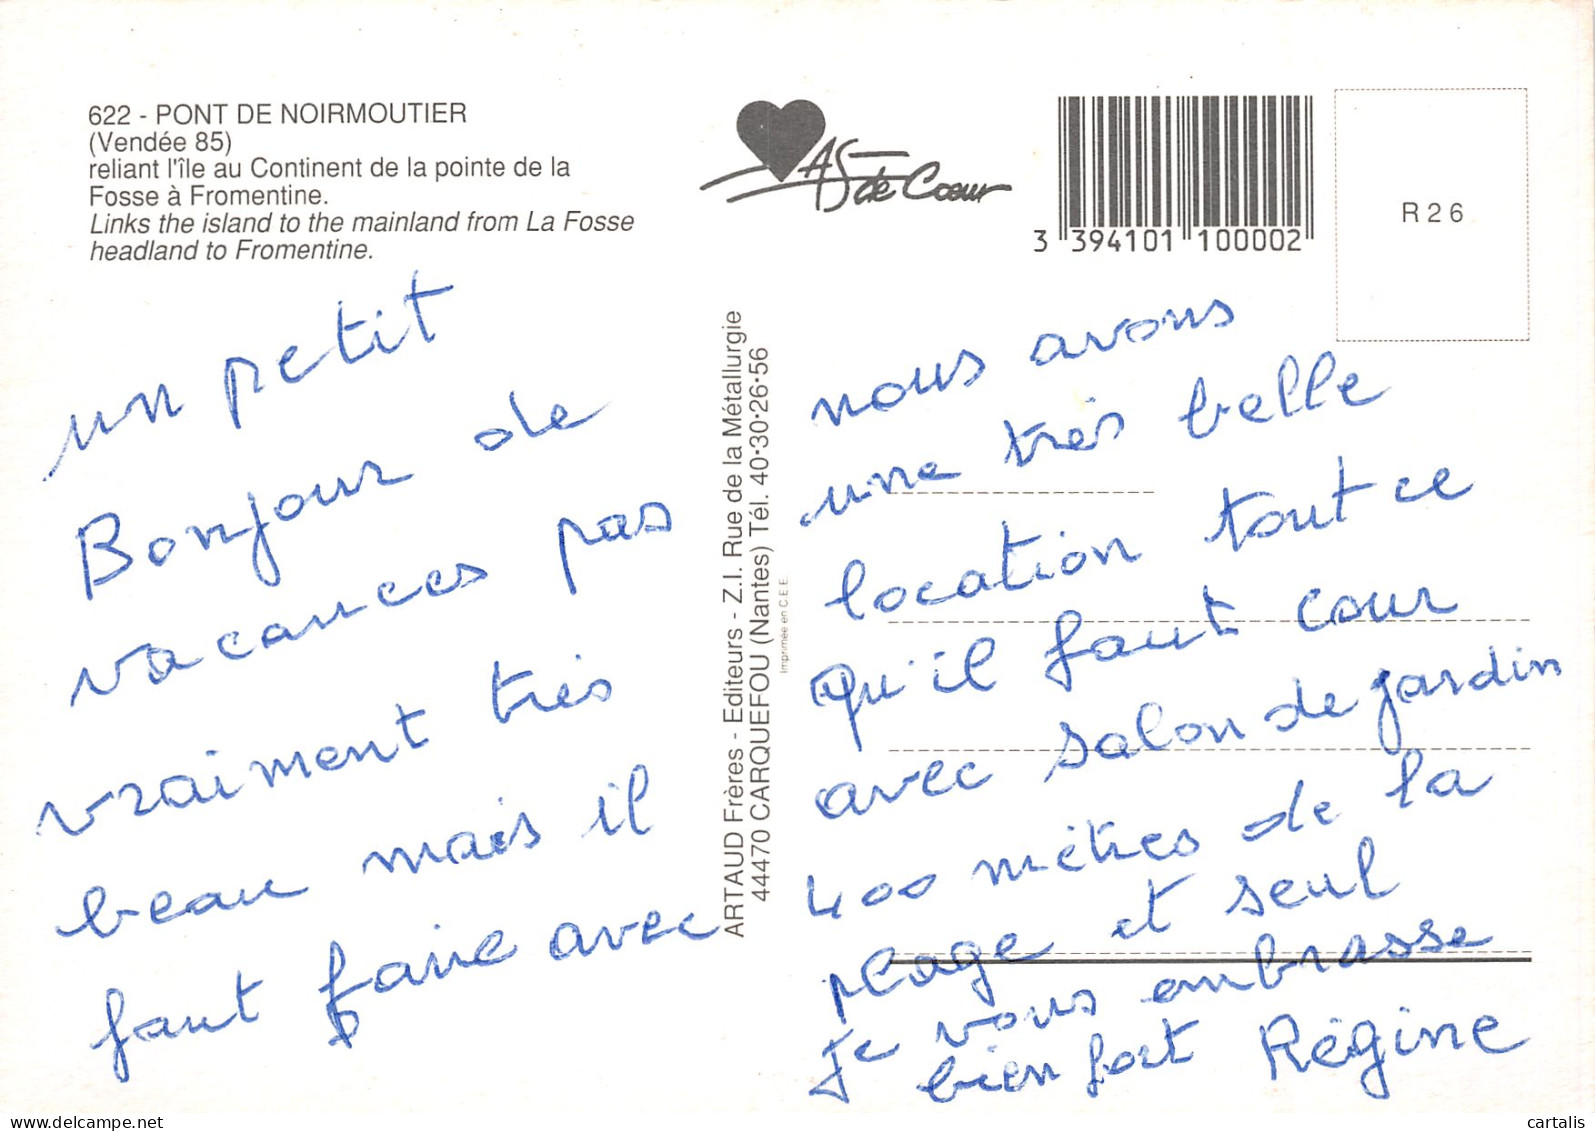 622 - PONT DE NOIRMOUTIER
(Vendée 85)
reliant l'île au Continent de la pointe de la
Fosse à Fromentine.
Links the island to the mainland from La Fosse
headland to Fromentine.
un petit
Bonjour de
vacances pas
vraiment très
beau mais il
faut faire avec
ARTAUD Frères - Editeurs - Z.I. Rue de la Métallurgie
44470 CARQUEFOU (Nantes) Tél. 40·30·26·56
Imprimée en C.E.E.
AS de Coeur
3 394101 100002
R26
nous avons
une très belle
location tout ce
qu'il faut cour
avec salon de jardin
400 mètres de la
plage et seul
je vous embrasse
bien fort Régine
cartalis